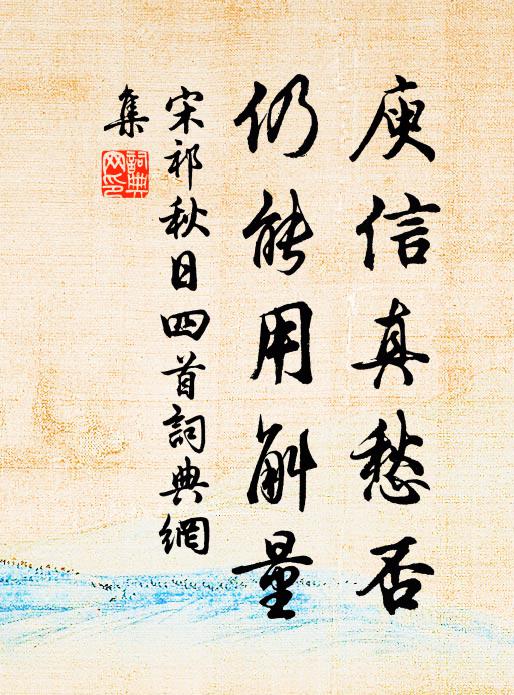 庾信真愁否
仍能用斛量
宋祁秋日四首詞典網
集
詞典
网印